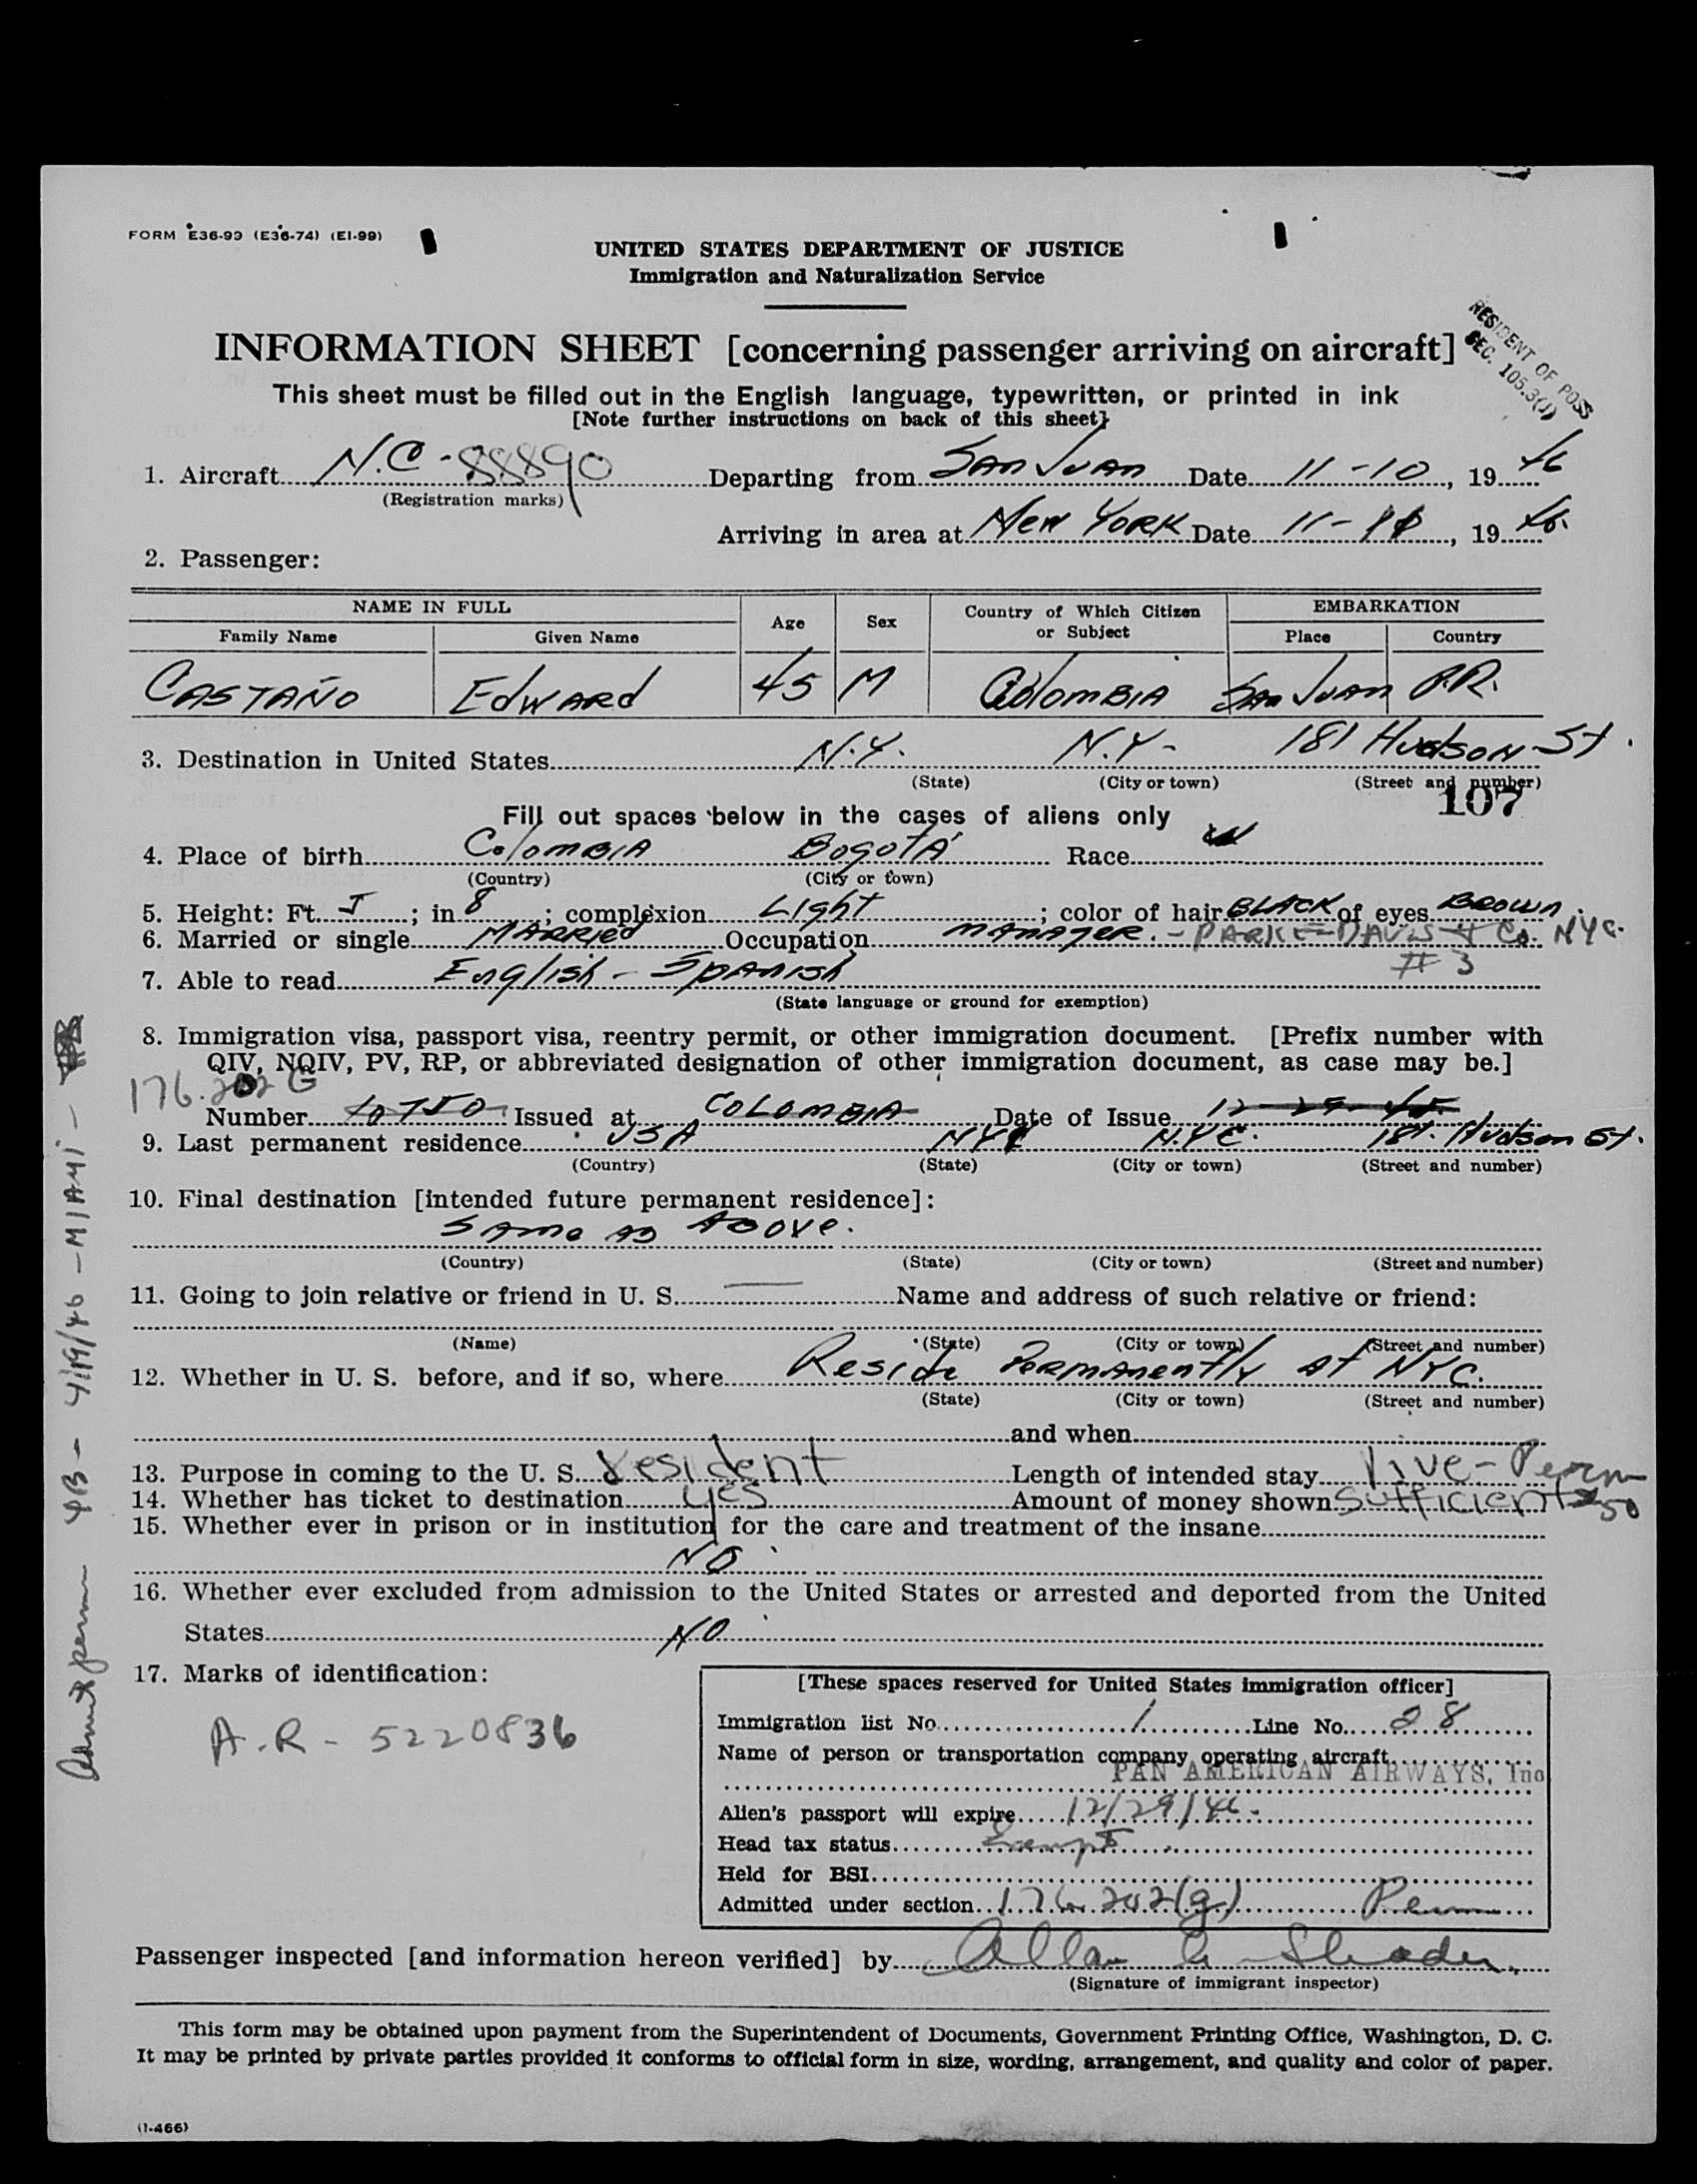 FORM E36-99 (E36-74) (EI-99)
UNITED STATES DEPARTMENT OF JUSTICE
Immigration and Naturalization Service
INFORMATION SHEET [concerning passenger arriving on aircraft]
RESIDENT OF POSS
SEC. 105.3(J)
This sheet must be filled out in the English language, typewritten, or printed in ink
[Note further instructions on back of this sheet]
1. Aircraft N.C-88890 Departing from SAN JUAN Date 11-10, 1946
(Registration marks)
Arriving in area at New YORK Date 11-, 1946.
2. Passenger:
NAME IN FULL Age Sex Country of Which Citizen or Subject EMBARKATION
Family Name Given Name Place Country
CASTAÑO EdWARd 45 M COlOMBIA SAN JUAN P.R.
3. Destination in United States N.Y. N.Y- 181 HudsON St.
(State) (City or town) (Street and number)
107
Fill out spaces below in the cases of aliens only
4. Place of birth COlOMBIA BOgOTÁ Race
(Country) (City or town)
5. Height: Ft. 5; in 8; complexion Light; color of hair BLACK of eyes BROWN.
6. Married or single MARRied Occupation MANAGER. - PARKE-DAVIS & Co. NYC.
# 3
7. Able to read English - SPANISH
(State language or ground for exemption)
8. Immigration visa, passport visa, reentry permit, or other immigration document. [Prefix number with
QIV, NQIV, PV, RP, or abbreviated designation of other immigration document, as case may be.]
176.202 G
Number 10750 Issued at COLOMBIA Date of Issue 12-29-45
9. Last permanent residence USA NYC N.Y.C. 181. Hudson St.
(Country) (State) (City or town) (Street and number)
10. Final destination [intended future permanent residence]:
SAme AS ABOVe.
(Country) (State) (City or town) (Street and number)
11. Going to join relative or friend in U. S. — Name and address of such relative or friend:
(Name) (State) (City or town) (Street and number)
12. Whether in U. S. before, and if so, where Reside PERMANENTly AT NYC.
(State) (City or town) (Street and number)
and when
13. Purpose in coming to the U. S. resident Length of intended stay live-Perm
14. Whether has ticket to destination yes Amount of money shown Sufficient 50
15. Whether ever in prison or in institution for the care and treatment of the insane
NO
16. Whether ever excluded from admission to the United States or arrested and deported from the United
States NO
17. Marks of identification:
A.R - 5220836
[These spaces reserved for United States immigration officer]
Immigration list No. 1 Line No. 28
Name of person or transportation company operating aircraft
PAN AMERICAN AIRWAYS, Inc
Alien's passport will expire 12/29/46.
Head tax status Exempt
Held for BSI
Admitted under section 176.202(g) Perm
Passenger inspected [and information hereon verified] by Allan G Shader
(Signature of immigrant inspector)
This form may be obtained upon payment from the Superintendent of Documents, Government Printing Office, Washington, D. C.
It may be printed by private parties provided it conforms to official form in size, wording, arrangement, and quality and color of paper.
(1-466)
Admit perm 4B - 4/19/46 - MIAMI -